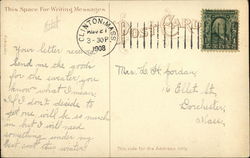 This Space For Writing Messages
POST CARD
CLINTON, MASS.
3-30P
1908
Your letter rec'd
Send me the goods
for the sweater you
know what I mean.
If I don't decide to
get one will be so much
but I will need
something under my
suit
Mrs. L. H. Jordan
16 Ellit St.
Dorchester,
Mass.
This side for the Address only